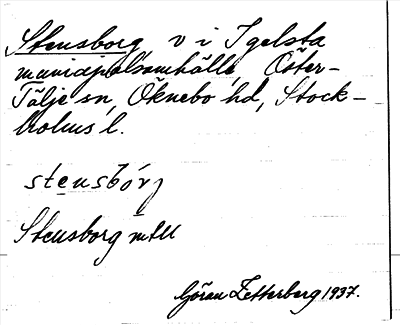 Stensborg, v i Igelsta
municipalsamhälle, Öster-
Tälje sn, Öknebo hd, Stock-
holms l.
stensbórj
Stensborg mtU
Göran Zetterberg 1937.